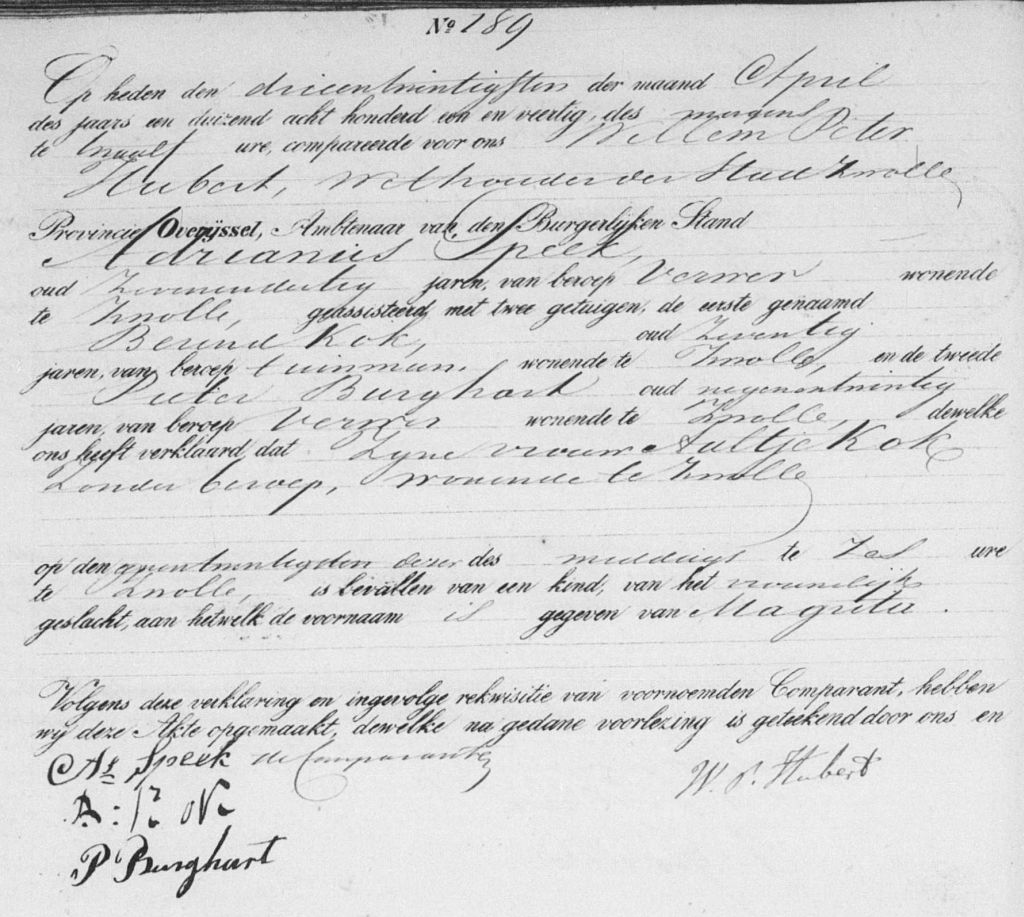 No 189
Op heden den drieentwintigsten der maand April
des jaars een duizend acht honderd een en veertig, des morgens
te twaalf ure, compareerde voor ons Willem Peter
Hubert, Wethouder der Stad Zwolle
Provincie Overijssel, Ambtenaar van den Burgerlijken Stand
Adrianus Speek,
oud Zevenendertig jaren, van beroep Verwer wonende
te Zwolle, geassisteerd met twee getuigen, de eerste genaamd
Berend Kok, oud Zeventig
jaren, van beroep tuinman, wonende te Zwolle, en de tweede
Pieter Burghart oud negenentwintig
jaren, van beroep Verwer wonende te Zwolle, dewelke
ons heeft verklaard dat Zyne vrouw Aaltje Kok
Zonder beroep, wonende te Zwolle
op den eenentwintigsten dezer des middags te Zes ure
te Zwolle, is bevallen van een kind, van het vrouwelijk
geslacht, aan hetwelk de voornaam is gegeven van Magreta.
Volgens deze verklaring en ingevolge rekwisitie van voornoemden Comparant, hebben
wij deze Akte opgemaakt, dewelke na gedane voorlezing is geteekend door ons en
de Comparanten
As Speek
W. P. Hubert
P Burghart